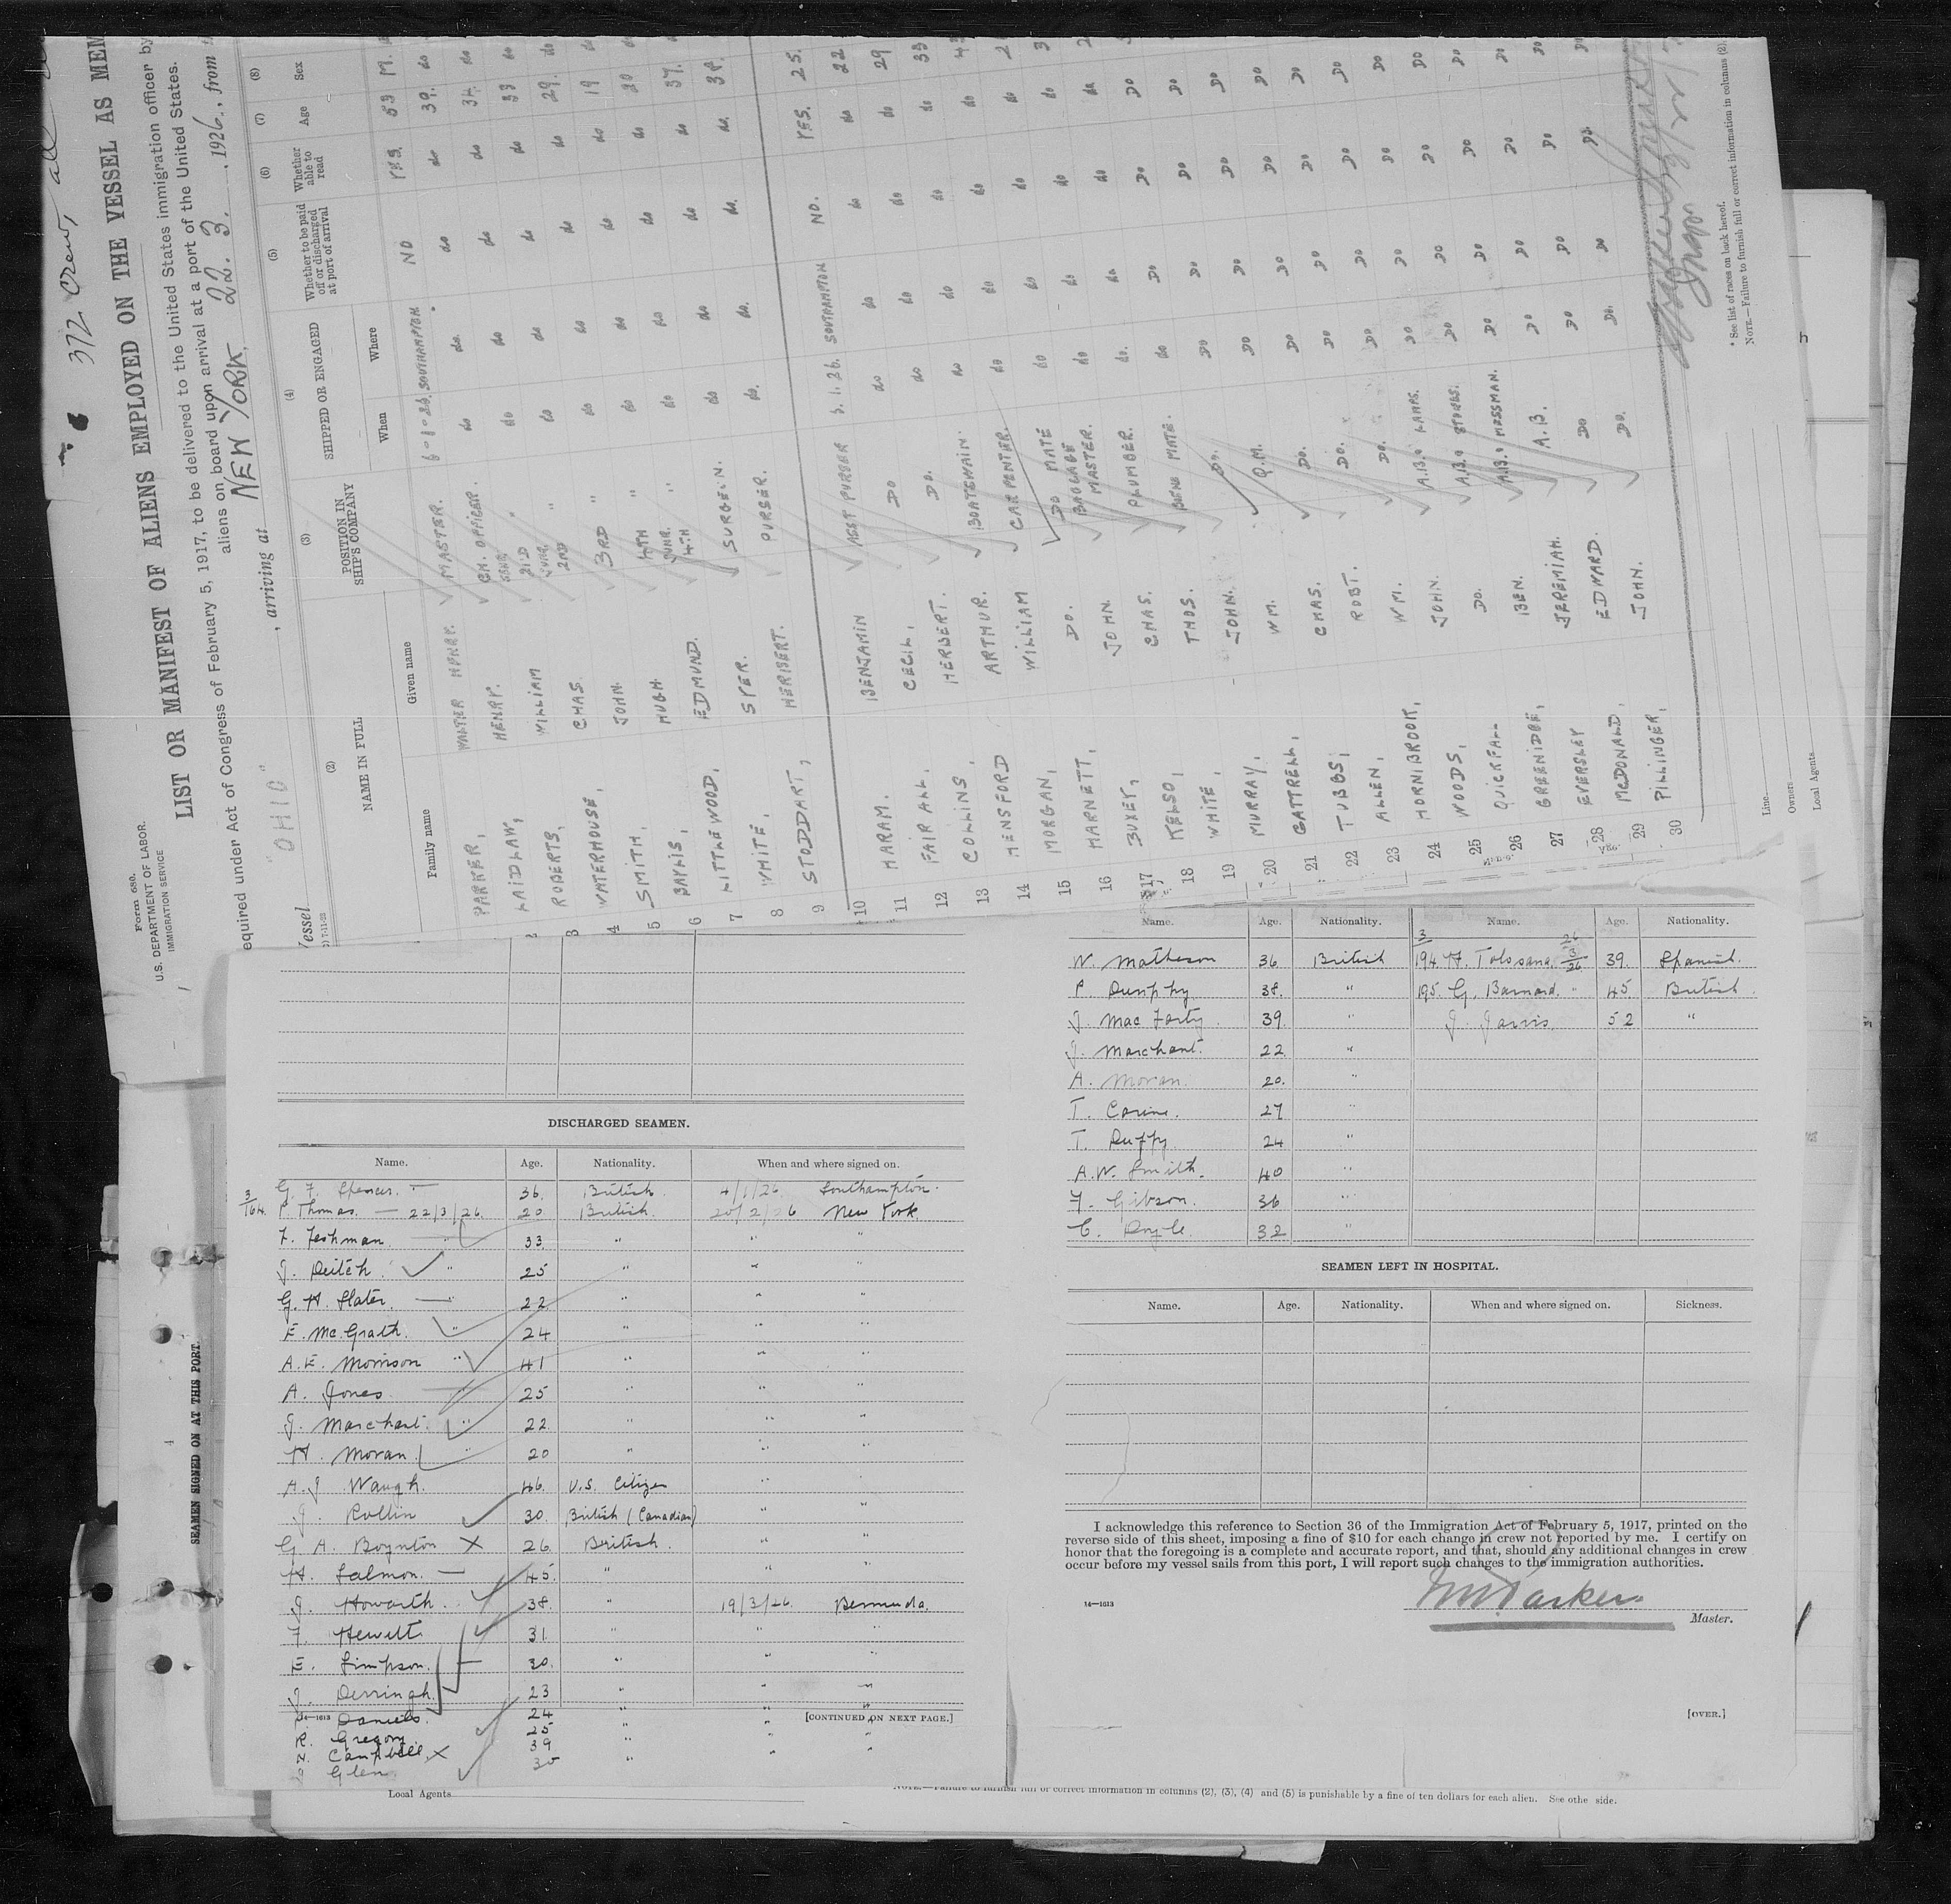 372 Crew, all
Form 680.
U.S. DEPARTMENT OF LABOR.
IMMIGRATION SERVICE
LIST OR MANIFEST OF ALIENS EMPLOYED ON THE VESSEL AS MEM
equired under Act of Congress of February 5, 1917, to be delivered to the United States immigration officer by
aliens on board upon arrival at a port of the United States.
essel "OHIO", arriving at NEW YORK, 22. 3. , 1926, from
(2) (3) (4) (5) (6) (7) (8)
NAME IN FULL POSITION IN SHIP'S COMPANY SHIPPED OR ENGAGED Whether to be paid off or discharged at port of arrival Whether able to read Age Sex
Family name Given name When Where
PARKER, WALTER HENRY. MASTER. 6-1-26. SOUTHAMPTON. NO YES. 53 M.
2 LAIDLAW, HENRY. CH. OFFICER. do do. do do 39. do
3 ROBERTS, WILLIAM SENR. 2ND " do do do do 34. do
4 WATERHOUSE, CHAS. JUNR. 2ND " do do do do 33 do
5 SMITH, JOHN. 3RD " do do do do 29. do
6 BAYLIS, HUGH. 4TH " do do do do 19 do
7 LITTLEWOOD, EDMUND. JUNR. 4TH " do do do do 20 do
8 WHITE, SYER. SURGEON. do do do do 37. do
9 STODDART, HERBERT. PURSER. do. do. do. do. 38.
10
11 HARAM. BENJAMIN ASST PURSER 6.1.26. SOUTHAMPTON NO. YES. 25.
12 FAIRALL, CECIL, DO do do do do 22
13 COLLINS, HERBERT. DO. do do do do 29
14 HENSFORD ARTHUR. BOATSWAIN. do do do do 33
15 MORGAN, WILLIAM CARPENTER. do do do do
16 HARNETT, DO. DO MATE do do do do
17 BUXEY, JOHN. BAGGAGE MASTER. do do do do
18 KELSO, CHAS. PLUMBER. do. do do do
19 WHITE, THOS. BOSNS MATE. do DO DO DO
20 MURRAY, JOHN. DO. DO DO DO DO
21 GATTRELL, WM. Q.M. DO DO DO DO
22 TUBBS, CHAS. DO. DO DO DO DO
23 ALLEN, ROBT. DO. DO DO DO DO
24 HORNIBROOK, WM. DO. DO DO DO DO
25 WOODS, JOHN. A.B. LAMPS. DO DO DO DO
26 QUICKFALL DO. A.B. STORES. DO DO DO DO
27 GREENIDGE, BEN. A.B. MESSMAN. DO DO DO DO
28 EVERSLEY JEREMIAH. A.B. DO DO DO DO
29 MCDONALD, EDWARD. DO DO DO DO DO
30 PILLINGER, JOHN. DO. DO. DO DO.
* See list of races on back hereof.
NOTE.—Failure to furnish full or correct information in columns (2),
Line
Owners
Local Agents
SEAMEN SIGNED ON AT THIS PORT.
DISCHARGED SEAMEN.
Name. Age. Nationality. When and where signed on.
G. F. Spencer. — 36. British. 4/1/26 Southampton.
P Thomas. — 22/3/26. 20 British. 20/2/26 New York.
F. Feshman " 33. " " "
J. Deitch. " 25 " " "
G. H. Slater. — " 22. " " "
E. McGrath. " 24 " " "
A. E. Morrison " 41 " " "
A. Jones " 25 " " "
J. Marchant. " 22. " " "
H. Moran " 20 " " "
A. J Waugh. 46. U.S. Citizen " "
J. Rollin 30. British (Canadian) " "
G A. Boynton X 26. British. " "
H. Salmon. — 45. " " "
J. Howarth. 38. " 19/3/26. Bermuda.
F. Hewitt 31. " " "
E. Simpson. 30. " " "
J. Derringh. 23 " " "
14—1613 Daniels. 24 " " "
[CONTINUED ON NEXT PAGE.]
R. Gregory. 25 " " "
N. Campbell. X 39 " " "
Glen 35 "
Name. Age. Nationality. Name. Age. Nationality.
W. Matheson 36 British 194 H. Tolosana. 39. Spanish.
P. Dunphy 38. " 195. G. Barnard. " 45. British.
J. Mac Forty. 39. " J. Jarvis. 52 "
J. Marchant. 22. "
A. Moran. 20. "
T. Carine. 27 "
T. Duffy. 24 "
A.W. Smith. 40 "
F. Gibson. 36 "
C. Doyle. 32 "
SEAMEN LEFT IN HOSPITAL.
Name. Age. Nationality. When and where signed on. Sickness.
I acknowledge this reference to Section 36 of the Immigration Act of February 5, 1917, printed on the
reverse side of this sheet, imposing a fine of $10 for each change in crew not reported by me. I certify on
honor that the foregoing is a complete and accurate report, and that, should any additional changes in crew
occur before my vessel sails from this port, I will report such changes to the immigration authorities.
14—1613
Master.
[OVER.]
Local Agents
NOTE.—Failure to furnish full or correct information in columns (2), (3), (4) and (5) is punishable by a fine of ten dollars for each alien. See othe side.